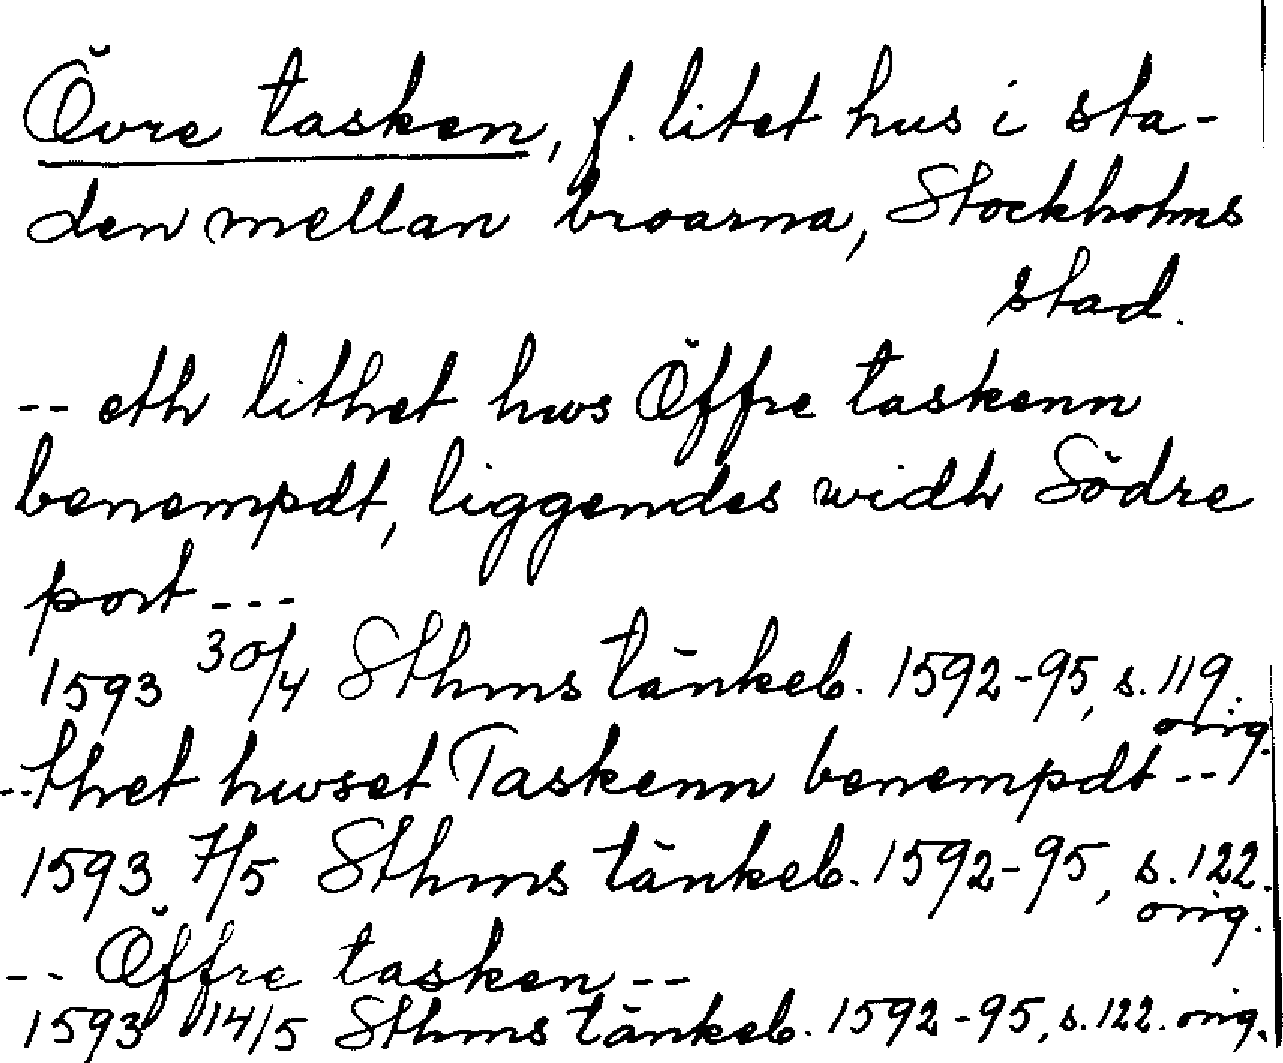 Övre tasken, f. litet hus i sta-
den mellan broarna, Stockholms
stad.
-- eth lithet hws Öffre taskenn
benempdt, liggendes widh Södre
port ---
1593 30/4 Sthms tänkeb. 1592-95, s. 119.
orig.
--thet hwset Taskenn benempdt --
1593 7/5 Sthms tänkeb. 1592-95, s. 122.
orig.
-- Öffre tasken --
1593 14/5 Sthms tänkeb. 1592-95, s. 122. orig.